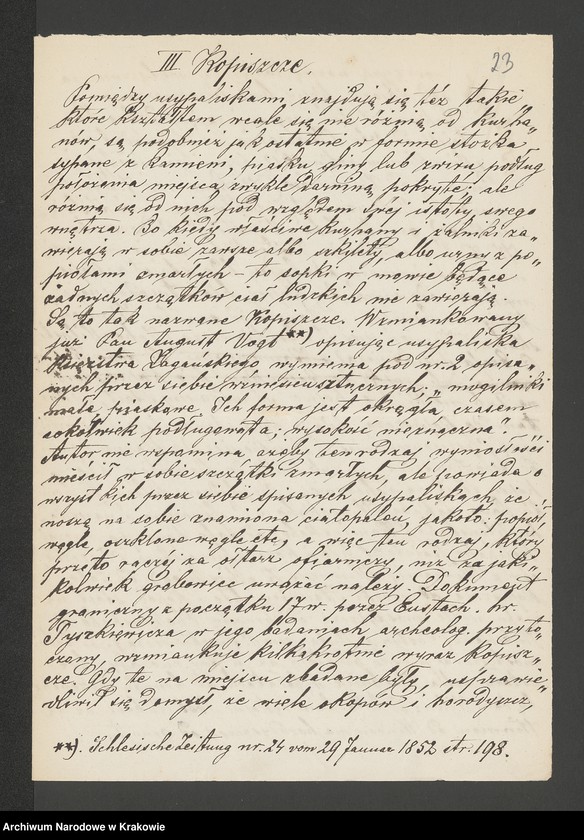 23
III Kopiszcze.
Pomiędzy usypaliskami znajdują się też takie,
które kształtem wcale się nie różnią od kurha„
nów, są podobnież jak ostatnie w formie stożka
sypane z kamieni, piasku, gliny lub żwiru podług
położenia miejsca, zwykle darniną pokryte; ale
różnią się od nich pod względem swej istoty, swego
wnętrza. Bo kiedy właściwe kurhany i żalniki za„
wierają w sobie zawsze albo szkielety, albo urny z po„
piołami zmarłych – to sopki w mowie będące
żadnych szczątków ciał ludzkich nie zawierają.
Są to tak nazwane Kopiszcze. Wzmiankowany
już Pan August Vogt **) opisując usypaliska
Księztwa Żagańskiego wymienia pod nr. 2 opisa„
nych przez siebie wzniesień sztucznych: „mogilniki
małe, piaskowe. Ich forma jest okrągła, czasem
cokolwiek podługowata; wysokość nieznaczna".
Autor nie wspomina ażeby ten rodzaj wyniosłości
mieścił w sobie szczątki zmarłych, ale powiada o
wszystkich przez siebie spisanych usypaliskach, że
noszą na sobie znamiona ciałopaleń, jakoto: popiół,
węgle, oszklone węgle etc, a więc ten rodzaj, który
przeto raczej za ołtarz ofiarny, niż za jaki„
kolwiek grobowiec uważać należy. Dokument
graniczny z początku 17 w. przez Eustach. hr.
Tyszkiewicza w jego badaniach archeolog. przyto„
czony, wzmiankuje kilkakrotnie wyraz Kopisz„
cze. Gdy te na miejscu zbadane były, usprawie„
dliwił się domysł, że wiele okopów i horodyszcz,
**). Schlesische Zeitung nr. 24 vom 29 Januar 1852 str. 198.
Archiwum Narodowe w Krakowie